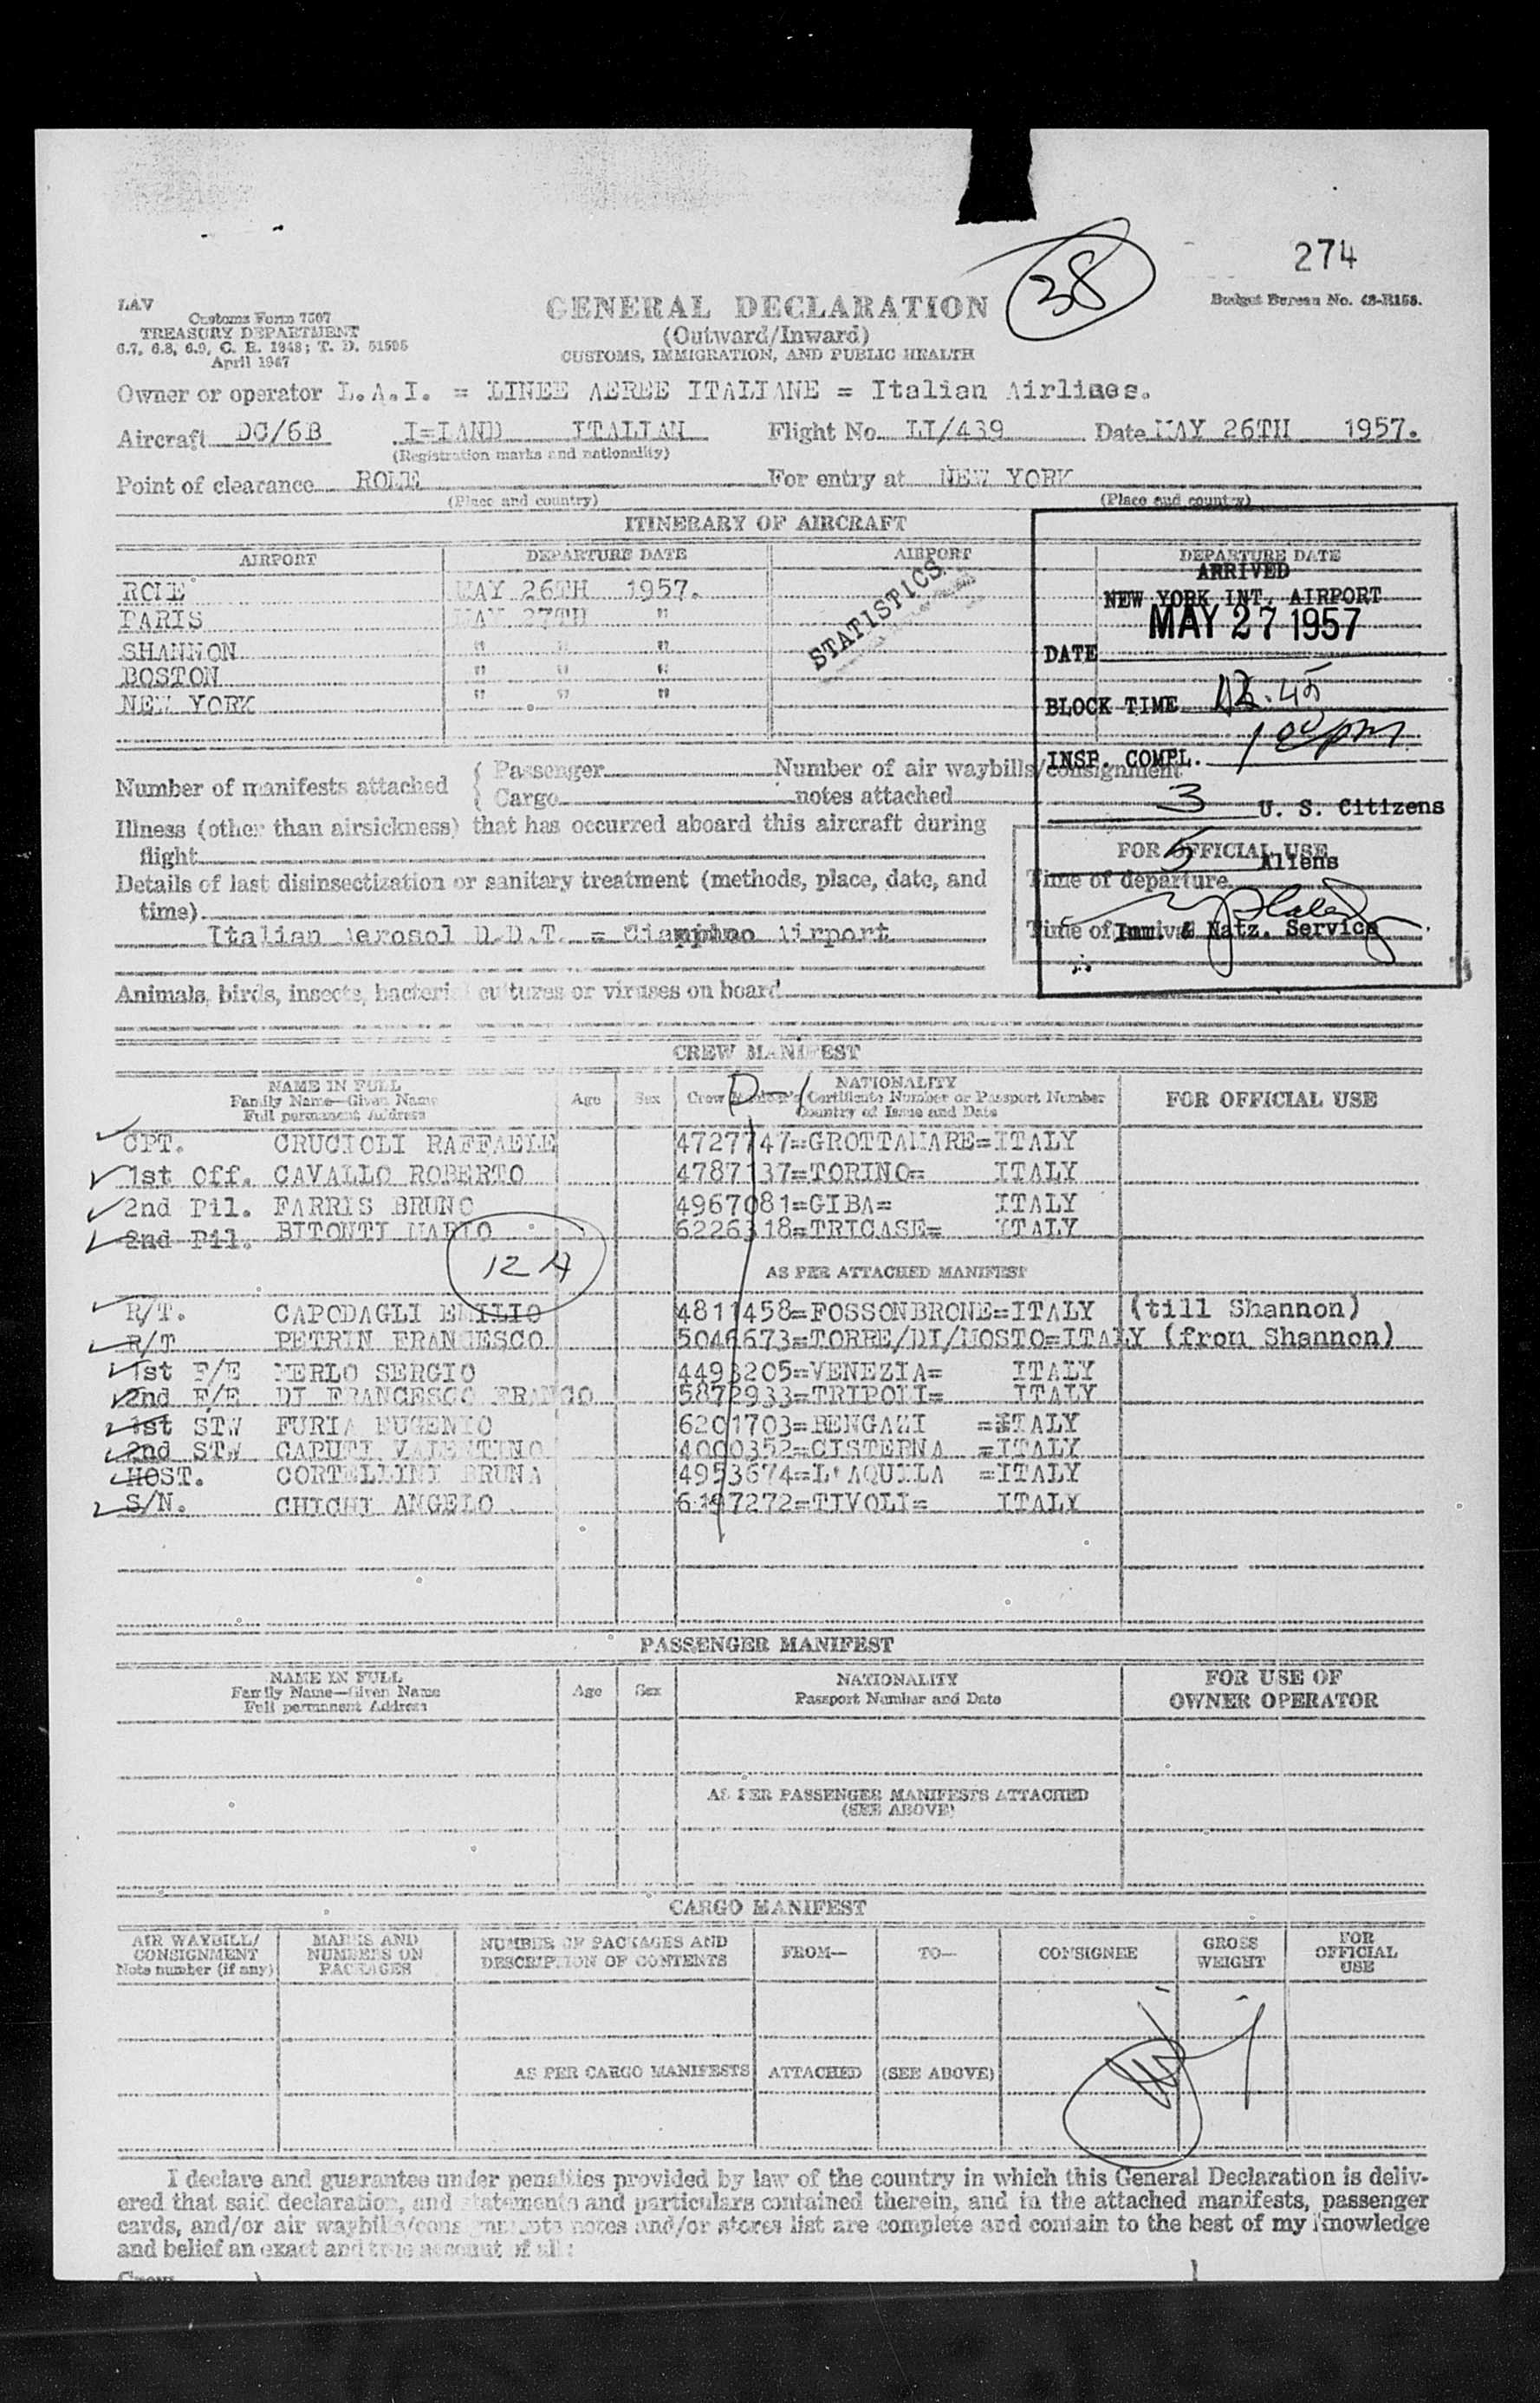 38
274
LAV
Customs Form 7507
TREASURY DEPARTMENT
6.7, 6.8, 6.9, C. R. 1943; T. D. 51595
April 1947
GENERAL DECLARATION
(Outward/Inward)
CUSTOMS, IMMIGRATION, AND PUBLIC HEALTH
Budget Bureau No. 48-R158.
Owner or operator L.A.I. = LINEE AEREE ITALIANE = Italian Airlines.
Aircraft DC/6B I=LAND ITALIAN Flight No. LI/439 Date MAY 26TH 1957.
(Registration marks and nationality)
Point of clearance ROME For entry at NEW YORK
(Place and country) (Place and country)
ITINERARY OF AIRCRAFT
AIRPORT DEPARTURE DATE AIRPORT DEPARTURE DATE
ROME MAY 26TH 1957.
PARIS MAY 27TH "
SHANNON " " "
BOSTON " " "
NEW YORK " " "
STATISTICS
ARRIVED
NEW YORK INT. AIRPORT
DATE MAY 27 1957
BLOCK TIME 12.45
INSP. COMPL. 1 00 pm
3 U. S. Citizens
5 Aliens
Imm. & Natz. Service
Number of manifests attached { Passenger Number of air waybills/consignment
{ Cargo notes attached
Illness (other than airsickness) that has occurred aboard this aircraft during
flight
Details of last disinsectization or sanitary treatment (methods, place, date, and
time)
Italian Aerosol D.D.T. = Ciampino Airport
FOR OFFICIAL USE
Time of departure
Time of
Animals, birds, insects, bacterial cultures or viruses on board
CREW MANIFEST
NAME IN FULL
Family Name—Given Name
Full permanent Address
Age Sex
NATIONALITY
Crew Member's Certificate Number or Passport Number
Country of Issue and Date
FOR OFFICIAL USE
D-1
CPT. CRUCIOLI RAFFAELE 4727747=GROTTAMARE=ITALY
1st Off. CAVALLO ROBERTO 4787137=TORINO= ITALY
2nd Pil. FARRIS BRUNO 4967081=GIBA= ITALY
2nd Pil. BITONTI MARIO 6226318=TRICASE= ITALY
12 A
AS PER ATTACHED MANIFEST
R/T. CAPODAGLI EMILIO 4811458=FOSSONBRONE=ITALY (till Shannon)
R/T PETRIN FRANCESCO 5046673=TORRE/DI/MOSTO=ITALY (from Shannon)
1st F/E MERLO SERGIO 4493205=VENEZIA= ITALY
2nd F/E DI FRANCESCO FRANCO 5872933=TRIPOLI= ITALY
1st STW FURIA EUGENIO 6201703=BENGAZI =ITALY
2nd STW CAPUTI VALENTINO 4000352=CISTERNA =ITALY
HOST. CORTELLINI BRUNA 4953674=L'AQUILA =ITALY
S/N. CHICHI ANGELO 6197272=TIVOLI= ITALY
PASSENGER MANIFEST
NAME IN FULL
Family Name—Given Name
Full permanent Address
Age Sex
NATIONALITY
Passport Number and Date
FOR USE OF
OWNER OPERATOR
AS PER PASSENGER MANIFESTS ATTACHED
(SEE ABOVE)
CARGO MANIFEST
AIR WAYBILL/
CONSIGNMENT
Note number (if any)
MARKS AND
NUMBERS ON
PACKAGES
NUMBER OF PACKAGES AND
DESCRIPTION OF CONTENTS
FROM—
TO—
CONSIGNEE
GROSS
WEIGHT
FOR
OFFICIAL
USE
AS PER CARGO MANIFESTS ATTACHED (SEE ABOVE)
I declare and guarantee under penalties provided by law of the country in which this General Declaration is deliv-
ered that said declaration, and statements and particulars contained therein, and in the attached manifests, passenger
cards, and/or air waybills/consignments notes and/or stores list are complete and contain to the best of my knowledge
and belief an exact and true account of all:
Crew )